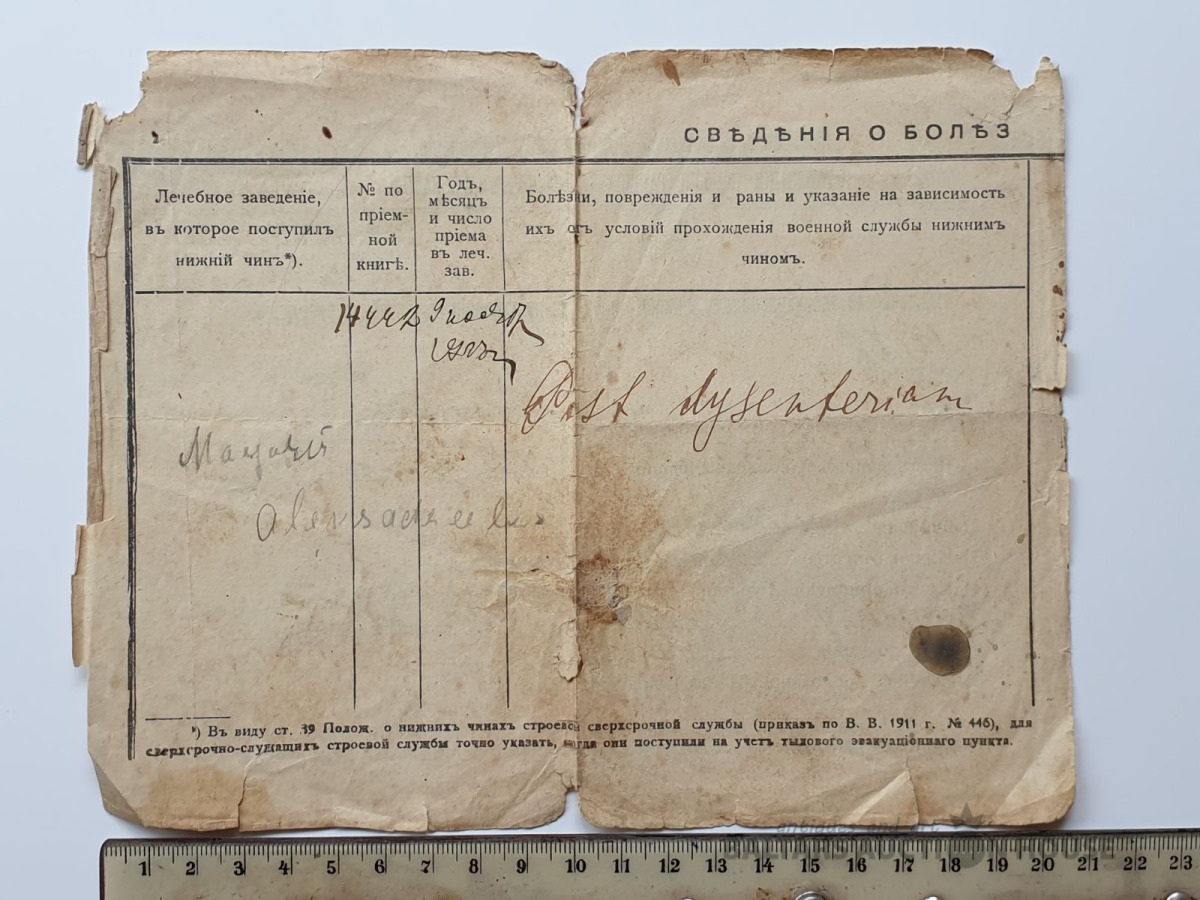 2
СВѢДѢНІЯ О БОЛѢЗ
Лечебное заведеніе,
въ которое поступилъ
нижній чинъ*).
№ по
пріем-
ной
книгѣ.
Годъ,
мѣсяцъ
и число
пріема
въ леч.
зав.
Болѣзни, поврежденія и раны и указаніе на зависимость
ихъ отъ условій прохожденія военной службы нижнимъ
чиномъ.
Post dysenteriam
*) Въ виду ст. 39 Полож. о нижнихъ чинахъ строевой сверхсрочной службы (приказъ по В. В. 1911 г. № 446), для
сверхсрочно-служащихъ строевой службы точно указать, когда они поступили на учетъ тылового эвакуаціоннаго пункта.
antiques and art
BALTARS AUCTION HOUSE
1 2 3 4 5 6 7 8 9 10 11 12 13 14 15 16 17 18 19 20 21 22 23